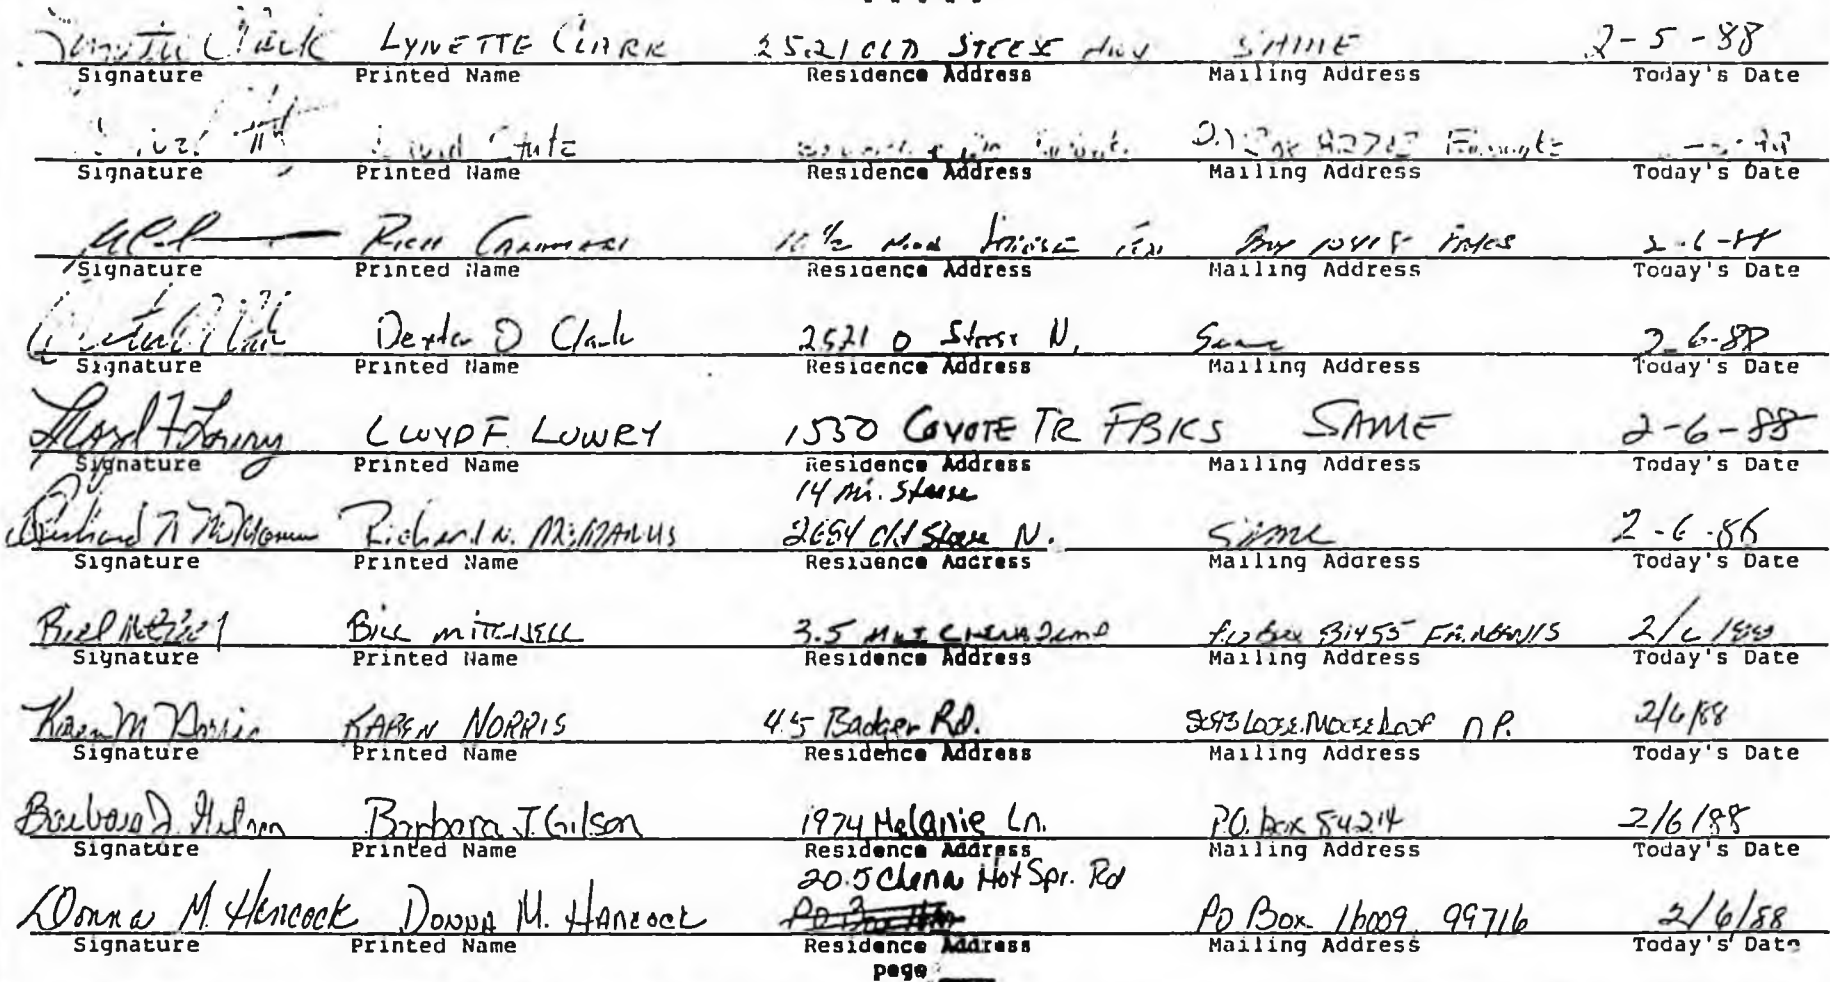 LYNETTE CLARK 2521 OLD STEESE Hwy SAME 2-5-88
Signature Printed Name Residence Address Mailing Address Today's Date
Signature Printed Name Residence Address Mailing Address Today's Date
Rich 2-6-88
Signature Printed Name Residence Address Mailing Address Today's Date
Dexter D Clark 2521 O Steese N. Same 2-6-88
Signature Printed Name Residence Address Mailing Address Today's Date
Lloyd F Lowry LLOYD F. LOWRY 1550 COYOTE TR FBKS SAME 2-6-88
Signature Printed Name Residence Address Mailing Address Today's Date
14 mi. Steese
Richard N McManus Richard N. McMANUS 2654 Old Steese N. SAME 2-6-88
Signature Printed Name Residence Address Mailing Address Today's Date
Bill Mitchell BILL MITCHELL 3.5 MILE CHENA PO Box 81455 FAIRBANKS 2/6/88
Signature Printed Name Residence Address Mailing Address Today's Date
Karen M Norris KAREN NORRIS 4.5 Badger Rd. LOOSE MOOSE LOOP N.P. 2/6/88
Signature Printed Name Residence Address Mailing Address Today's Date
Barbara J. Gilson Barbara J. Gilson 1974 Melanie Ln. P.O. box 84214 2/6/88
Signature Printed Name Residence Address Mailing Address Today's Date
20.5 Chena Hot Spr. Rd
Donna M. Hancock DONNA M. HANCOCK PO Box 16009 99716 2/6/88
Signature Printed Name Residence Address Mailing Address Today's Date
page